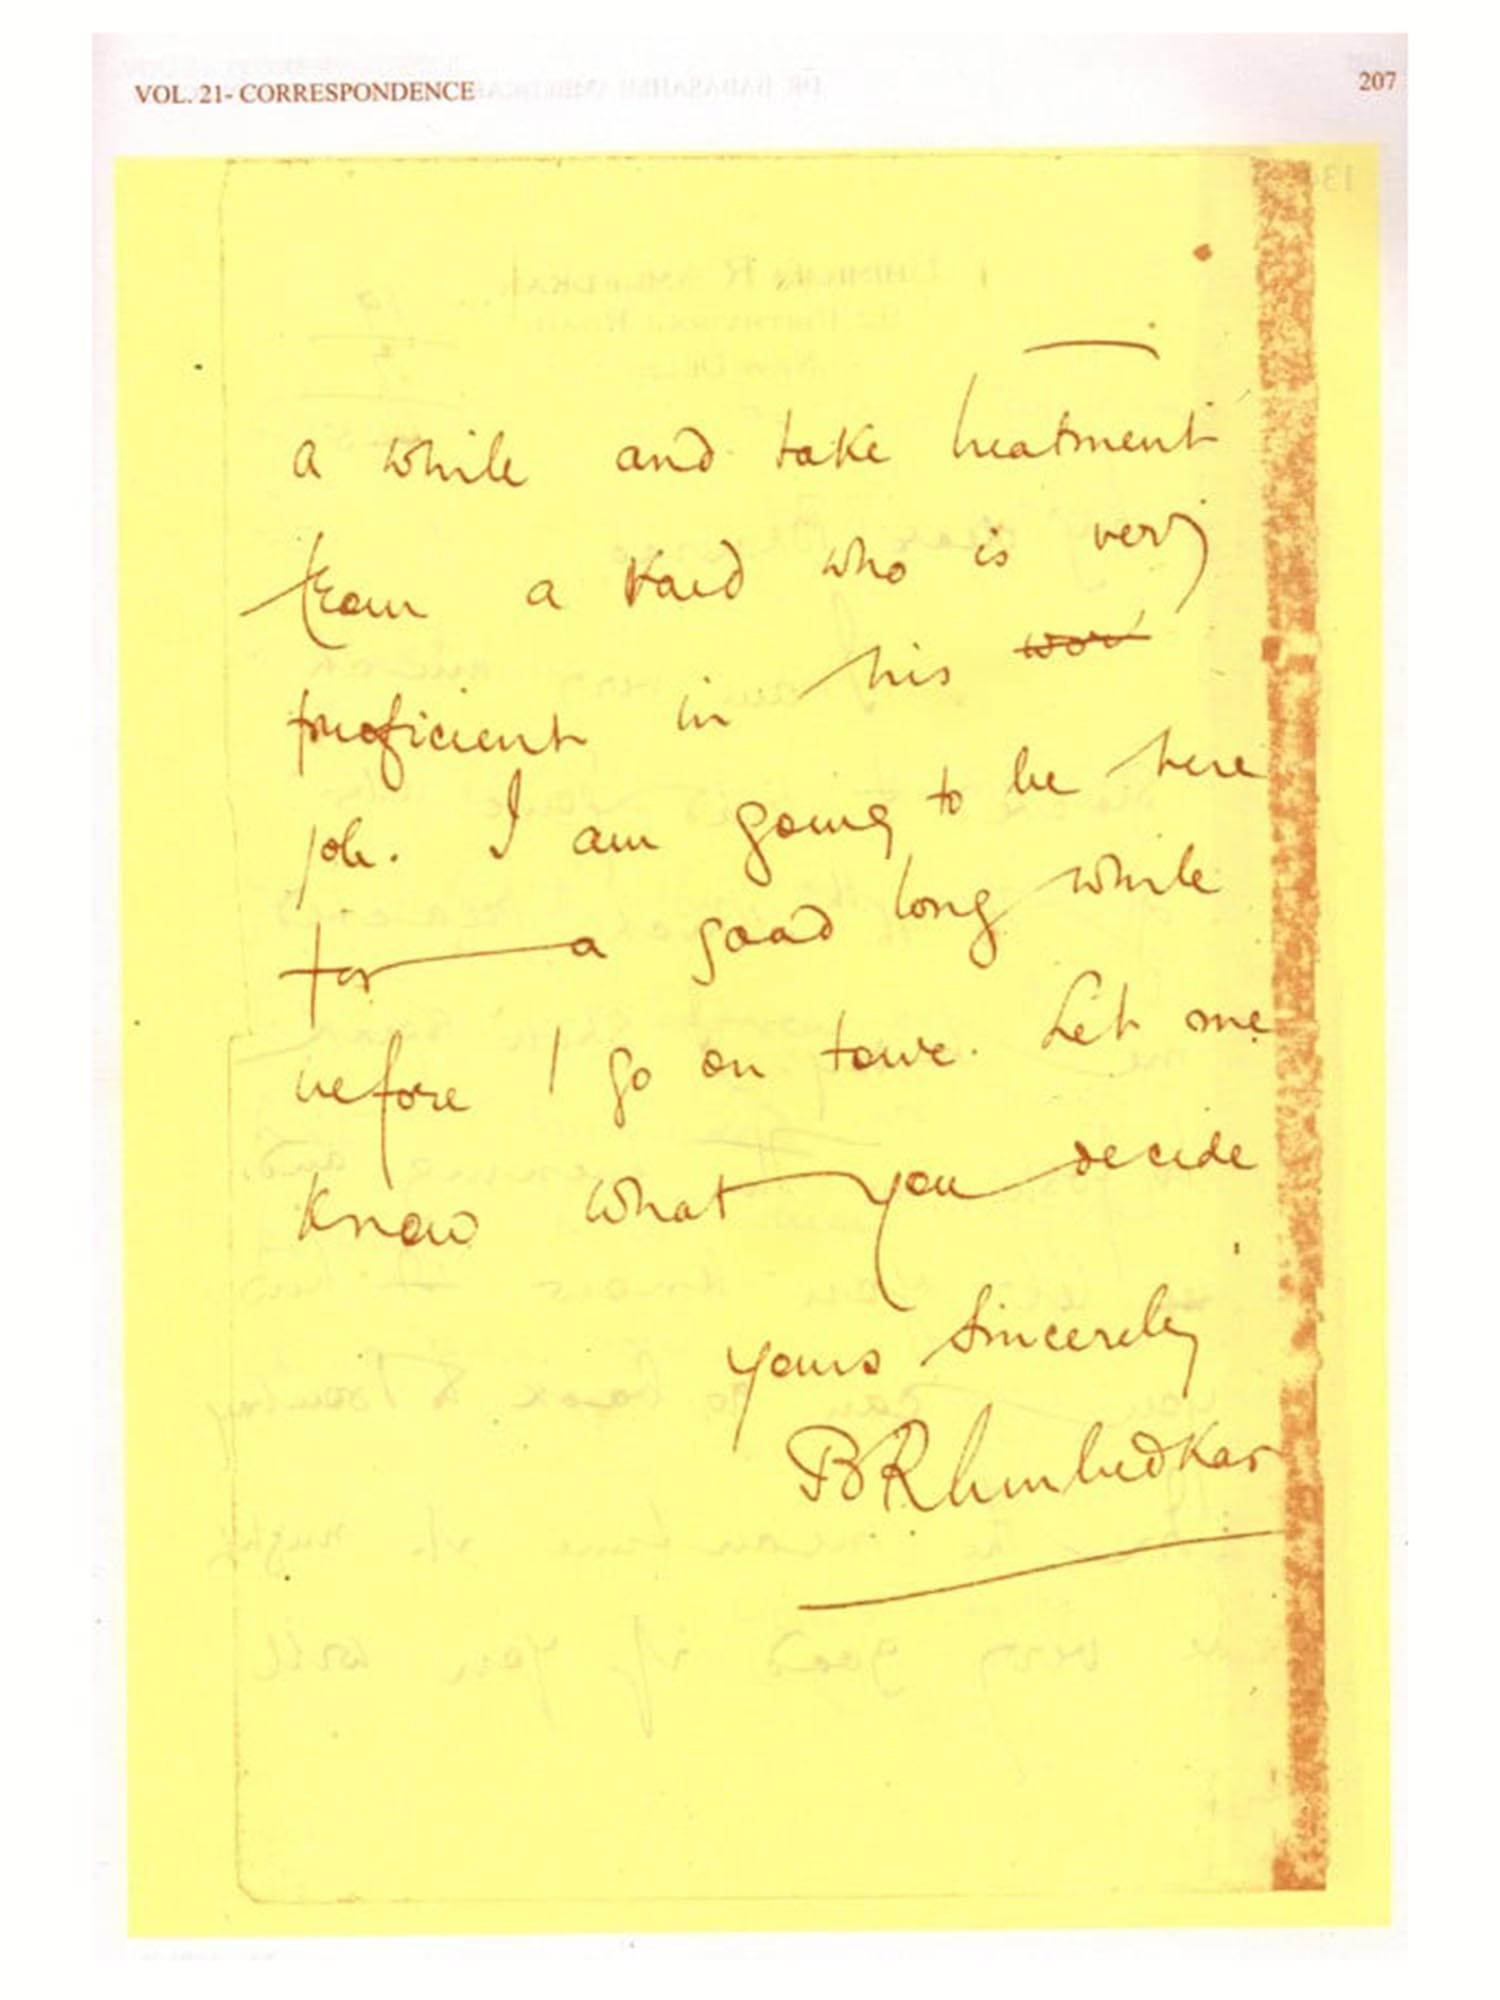 VOL. 21- CORRESPONDENCE 207
a while and take treatment
from a Vaid who is very
proficient in his wor
job. I am going to be here
for a good long while
before I go on tour. Let me
know what you decide
Yours Sincerely
BRAmbedkar